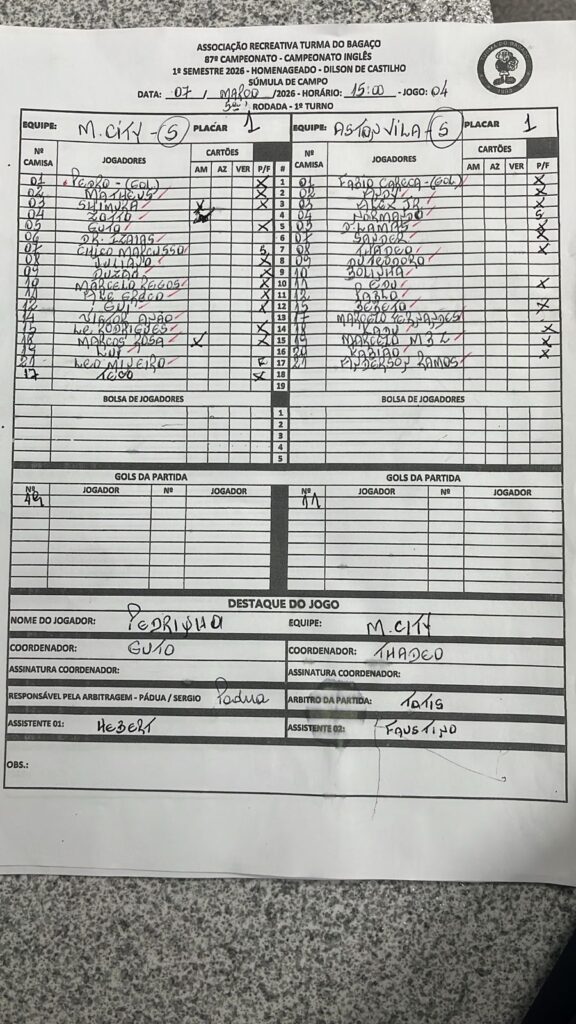 ASSOCIAÇÃO RECREATIVA TURMA DO BAGAÇO
87º CAMPEONATO - CAMPEONATO INGLÊS
1º SEMESTRE 2026 - HOMENAGEADO - DILSON DE CASTILHO
SÚMULA DE CAMPO
DATA: 07 / MARÇO /2026 - HORÁRIO: 15:00 - JOGO: 04
5ª RODADA - 1º TURNO
EQUIPE: M. CITY - 5 PLACAR 1 EQUIPE: ASTON VILA - 5 PLACAR 1
Nº CAMISA JOGADORES CARTÕES AM AZ VER P/F # Nº CAMISA JOGADORES CARTÕES AM AZ VER P/F
01 PEDRO - (GOL) X 1 01 FABIO CARECA - (GOL) X
02 MATHEUS X 2 02 X
03 SHIMURA X X 3 03 ALEX JR. X
04 ZOTTO 4 04 NORMANDO
05 GUTO X 5 05 D. LAMAS X
06 DR. IZAIAS 6 07 SANDER X
07 CHICO MARCUSSO 7 08 THADEO
08 JULIANO X 8 09
09 X 9 10 BOLINHA
10 MARCELO REGOS X 10 11 P. EDU X
11 X 11 12 PABLO
12 GUI X 12 15 X
14 VIEIRA 13 17 MARCELO FERNANDES
15 LE. RODRIGUES X 14 18 KADU X
18 MARCOS ROSA X X 15 19 MARCELO X
19 16 20 FABIÃO X
21 LEO MINEIRO F 17 21 ANDERSON RAMOS
17 TECO X 18
19
BOLSA DE JOGADORES BOLSA DE JOGADORES
1
2
3
4
5
GOLS DA PARTIDA GOLS DA PARTIDA
Nº JOGADOR Nº JOGADOR Nº JOGADOR Nº JOGADOR
11
DESTAQUE DO JOGO
NOME DO JOGADOR: PEDRINHO EQUIPE: M. CITY
COORDENADOR: GUTO COORDENADOR: THADEO
ASSINATURA COORDENADOR: ASSINATURA COORDENADOR:
RESPONSÁVEL PELA ARBITRAGEM - PÁDUA / SERGIO Padua ARBITRO DA PARTIDA: TATIS
ASSISTENTE 01: HEBERT ASSISTENTE 02: FAUSTINO
OBS.: